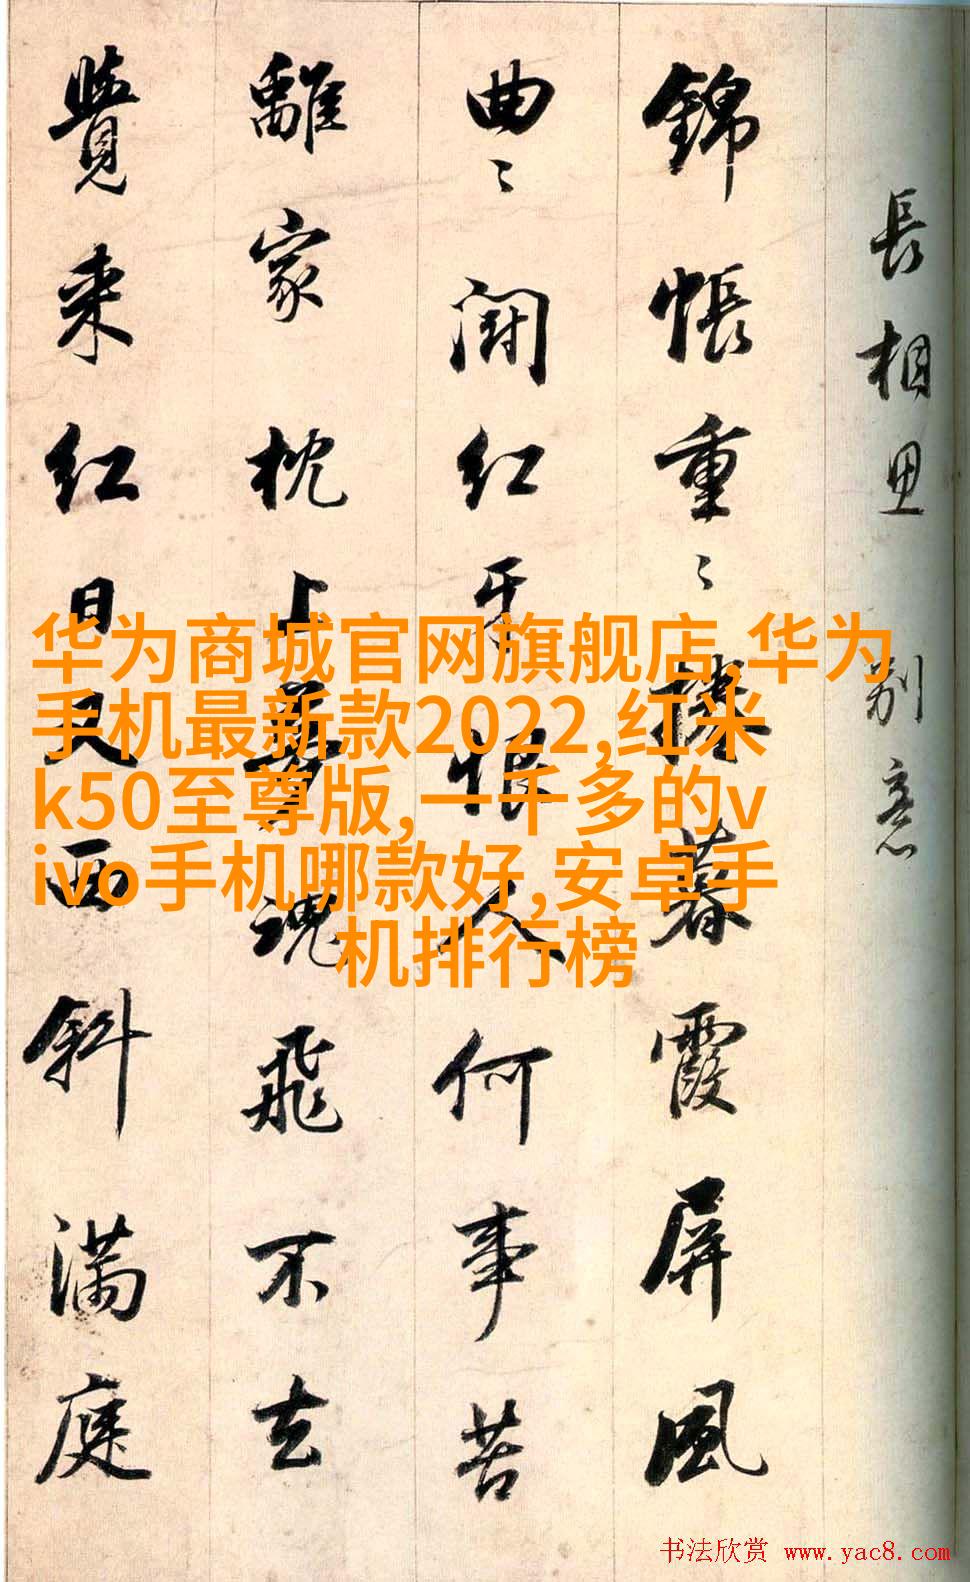 長相思 別意
錦帳重〻捲暮霞屏風
曲〻闘红牙恨人何事苦
離家枕上夢魂飛不去
覺来红日又西斜满庭
华为商城官网旗舰店,华为
手机最新款2022,红米
k50至尊版,一千多的v
ivo手机哪款好,安卓手
机排行榜
书法欣赏 www.yac8.com